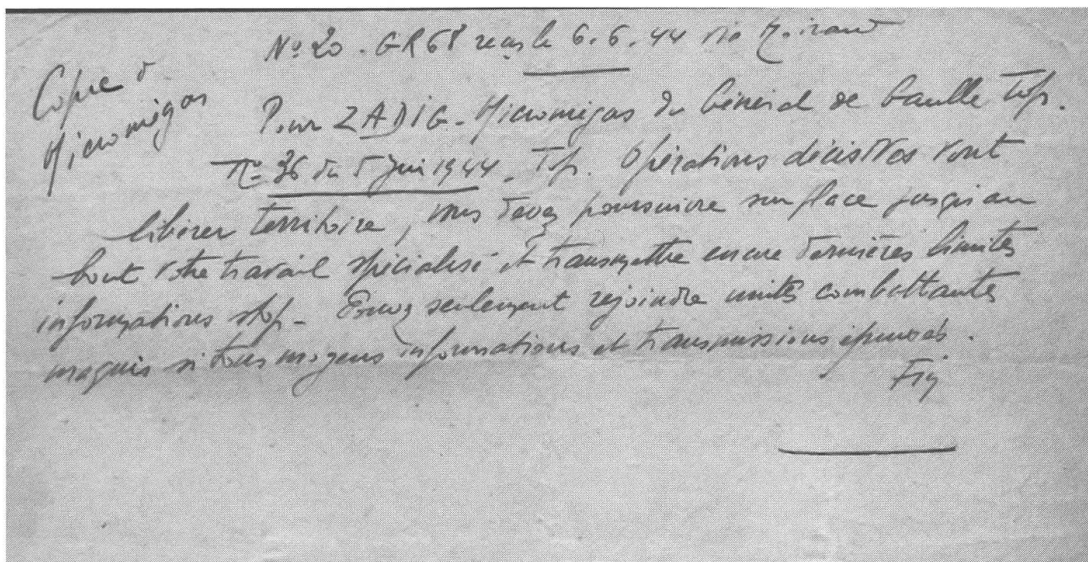 N° 20. GR 68 reçu le 6.6.44 via
Copie à
Micromégas
Pour ZADIG - Micromégas du Général de Gaulle Stop.
N° 36 du 5 juin 1944. Stop. Opérations décisives vont
libérer territoire, vous devez poursuivre sur place jusqu'au
bout votre travail spécialisé et transmettre encore dernières limites
informations stop - Devez seulement rejoindre unités combattantes
maquis si tous moyens informations et transmissions épuisés.
Fin